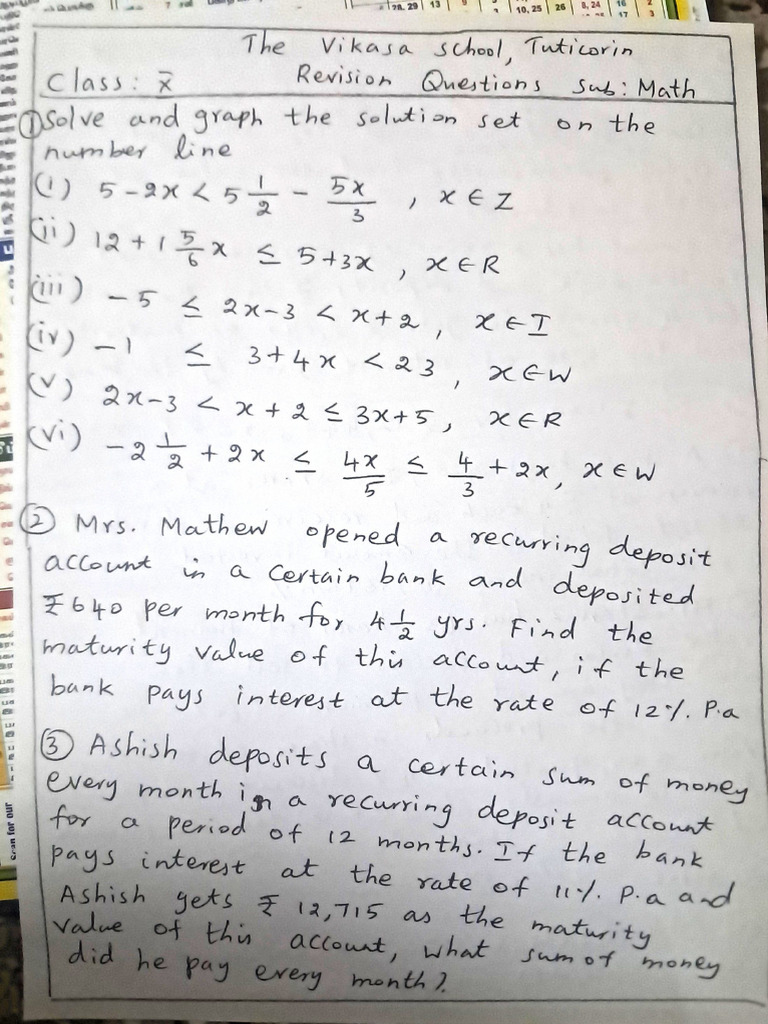 28, 29 13 10, 25 26 8, 24 16
17 3
The Vikasa School, Tuticorin
Class: X̄ Revision Questions Sub: Math
① Solve and graph the solution set on the
number line
(i) 5 - 2x < 5 1/2 - 5x/3 , x ∈ Z
(ii) 12 + 1 5/6 x ≤ 5 + 3x , x ∈ R
(iii) -5 ≤ 2x-3 < x+2, x ∈ I
(iv) -1 ≤ 3+4x < 23, x ∈ W
(v) 2x-3 < x + 2 ≤ 3x+5, x ∈ R
(vi) -2 1/2 + 2x ≤ 4x/5 ≤ 4/3 + 2x, x ∈ W
② Mrs. Mathew opened a recurring deposit
account in a certain bank and deposited
₹640 per month for 4 1/2 yrs. Find the
maturity value of this account, if the
bank pays interest at the rate of 12%. P.a
③ Ashish deposits a certain sum of money
every month in a recurring deposit account
for a period of 12 months. If the bank
pays interest at the rate of 11%. P.a and
Ashish gets ₹ 12,715 as the maturity
value of this account, what sum of money
did he pay every month?
Scan for our